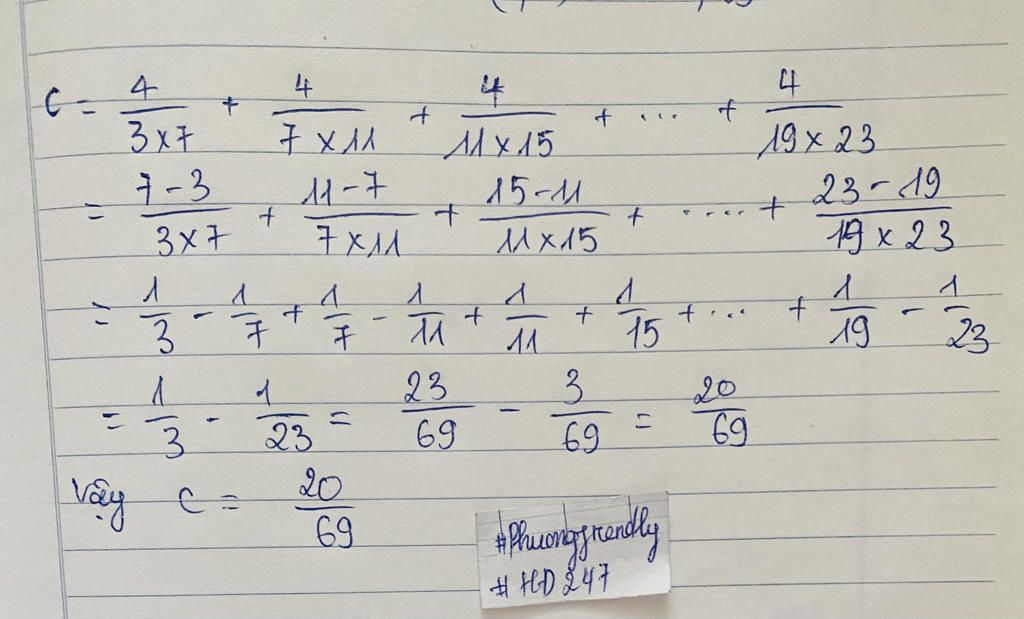 C = 4/(3×7) + 4/(7×11) + 4/(11×15) + ... + 4/(19×23)
= (7-3)/(3×7) + (11-7)/(7×11) + (15-11)/(11×15) + .... + (23-19)/(19×23)
= 1/3 - 1/7 + 1/7 - 1/11 + 1/11 + 1/15 + ... + 1/19 - 1/23
= 1/3 - 1/23 = 23/69 - 3/69 = 20/69
Vậy C = 20/69
#Phuongfrendly
#HD247